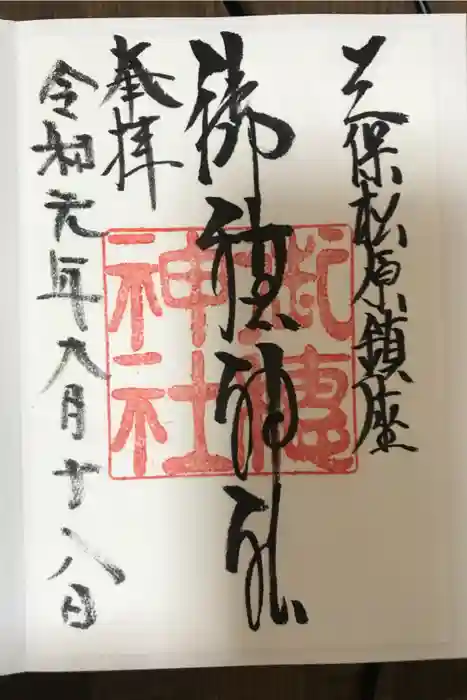 三保松原鎮座
御穂神社
奉拝
令和元年九月十八日
御穂
神社